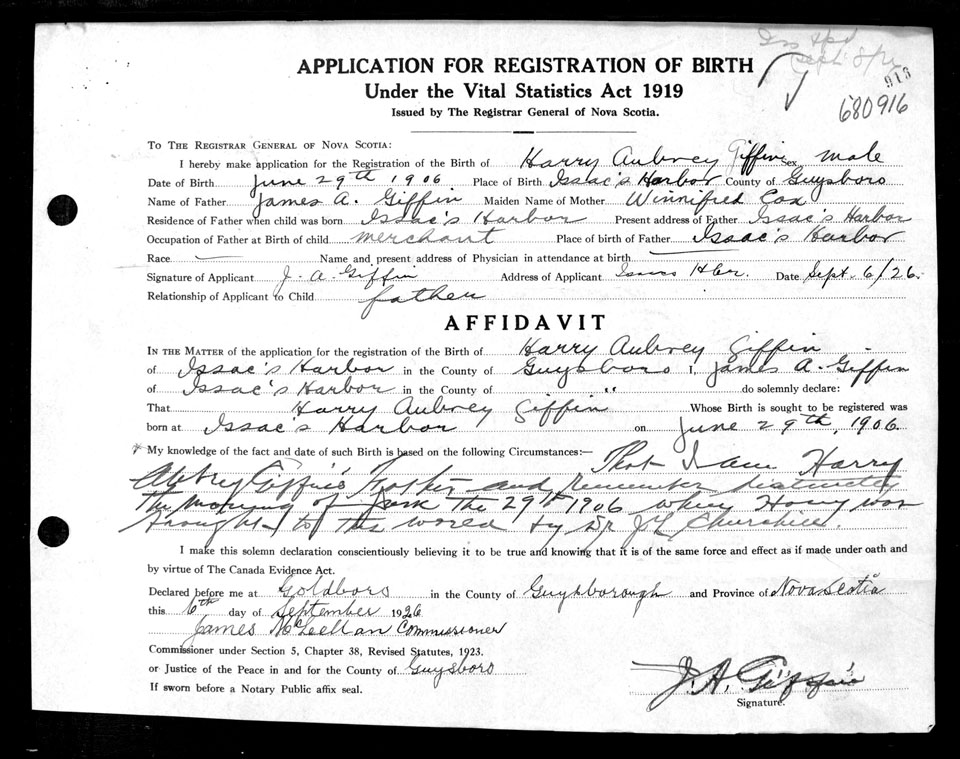 APPLICATION FOR REGISTRATION OF BIRTH
913
Under the Vital Statistics Act 1919
680916
Issued by The Registrar General of Nova Scotia.
TO THE REGISTRAR GENERAL OF NOVA SCOTIA:
I hereby make application for the Registration of the Birth of Harry Aubrey Giffin Sex male
Date of Birth June 29th 1906 Place of Birth Issac's Harbor County of Guysboro
Name of Father James A. Giffin Maiden Name of Mother Winnifred Cox
Residence of Father when child was born Issac's Harbor Present address of Father Issac's Harbor
Occupation of Father at Birth of child merchant Place of birth of Father Issac's Harbor
Race — Name and present address of Physician in attendance at birth —
Signature of Applicant J. A. Giffin Address of Applicant Isaacs Hbr. Date Sept. 6/26.
Relationship of Applicant to Child father
AFFIDAVIT
IN THE MATTER of the application for the registration of the Birth of Harry Aubrey Giffin
of Issac's Harbor in the County of Guysboro I, James A. Giffin
of Issac's Harbor in the County of " do solemnly declare:
That Harry Aubrey Giffin Whose Birth is sought to be registered was
born at Issac's Harbor on June 29th, 1906.
* My knowledge of the fact and date of such Birth is based on the following Circumstances:— That I am Harry
Abbrey Giffin's Father and remember distinctly
the morning of June the 29th 1906 when Harry was
brought to this world by Dr J L Churchill.
I make this solemn declaration conscientiously believing it to be true and knowing that it is of the same force and effect as if made under oath and
by virtue of The Canada Evidence Act.
Declared before me at Goldboro in the County of Guysborough and Province of Nova Scotia
this 6th day of September 1926
James McLellan Commissioner
Commissioner under Section 5, Chapter 38, Revised Statutes, 1923.
or Justice of the Peace in and for the County of Guysboro
If sworn before a Notary Public affix seal.
J. A. Giffin
Signature.